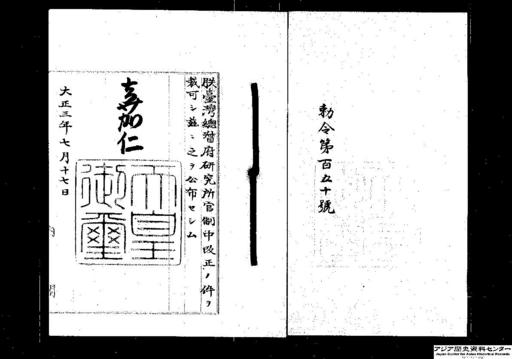 勅令第百五十號
朕臺灣總督府研究所官制中改正ノ件ヲ
裁可シ茲ニ之ヲ公布セシム
嘉仁
天皇
御璽
大正三年七月十七日
内
閣
アジア歴史資料センター
Japan Center for Asian Historical Records